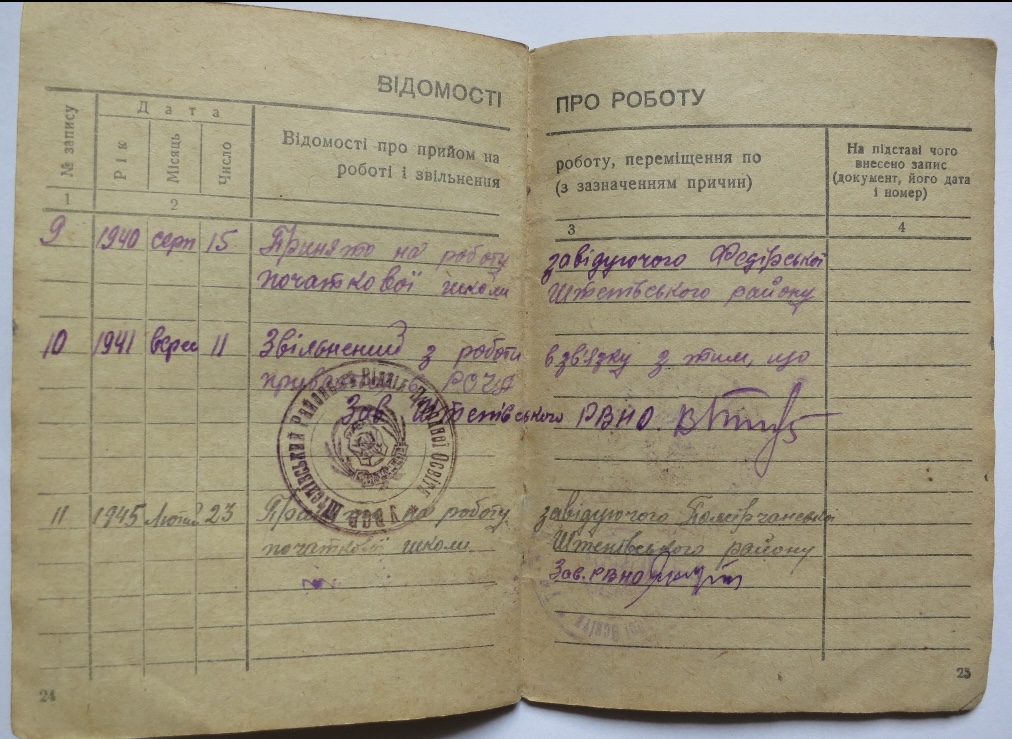 ВІДОМОСТІ ПРО РОБОТУ
№ запису
Дата
Рік
Місяць
Число
Відомості про прийом на роботу, переміщення по
роботі і звільнення (з зазначенням причин)
На підставі чого
внесено запис
(документ, його дата
і номер)
1 2 3 4
9 1940 серп 15 Принято на роботу завідуючого Федірської
початкової школи Штепівського району
10 1941 верес 11 Звільнений з роботи в зв'язку з тим, що
призваний в РСЧА
Зав Штепівського РВНО
11 1945 Лютий 23 на роботу завідуючого
початкової школи Штепівського району
Зав. РВНО
Районний Відділ Народної Освіти
УРСР
24
25